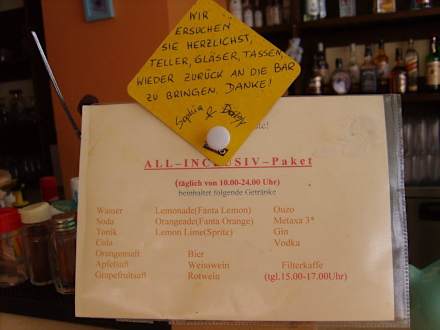 WIR
ERSUCHEN
SIE HERZLICHST,
TELLER, GLÄSER, TASSEN,
WIEDER ZURÜCK AN DIE BAR
ZU BRINGEN. DANKE!
Sophia &
ALL-INCLUSIV-Paket
(täglich von 10.00-24.00 Uhr)
beinhaltet folgende Getränke
Wasser Lemonade(Fanta Lemon) Ouzo
Soda Orangeade(Fanta Orange) Metaxa 3*
Tonik Lemon Lime(Sprite) Gin
Cola Vodka
Orangensaft Bier
Apfelsaft Weisswein Filterkaffe
Grapefruitsaft Rotwein (tgl.15.00-17.00Uhr)